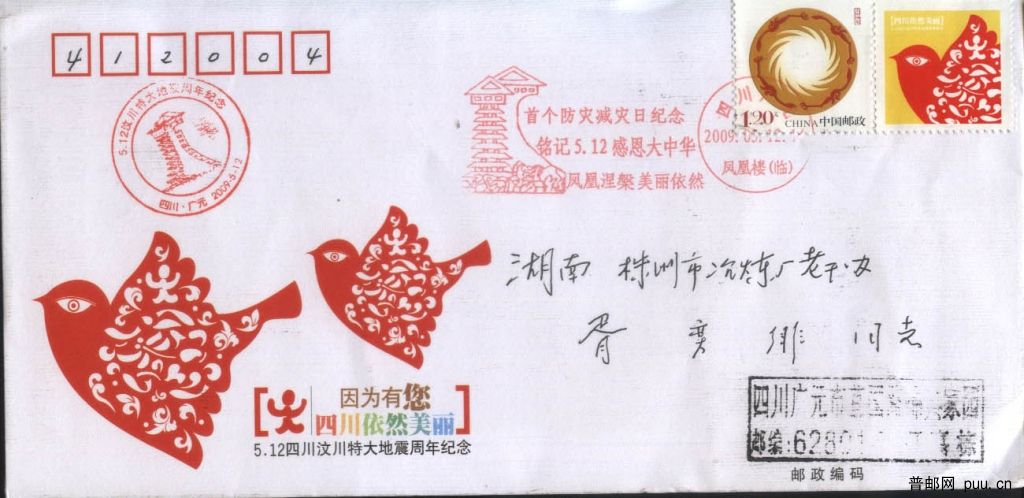 412004
5.12汶川特大地震周年纪念
四川·广元 2009-5-12
首个防灾减灾日纪念
铭记 5.12 感恩大中华
凤凰涅槃 美丽依然
四川
2009.05.12
凤凰楼(临)
1.20元
CHINA 中国邮政
四川依然美丽
湖南 株洲市冶炼厂老干办
胥 同志
因为有您
四川依然美丽
5.12四川汶川特大地震周年纪念
四川广元市
邮编:6280
栋
邮政编码
普邮网 puu.cn